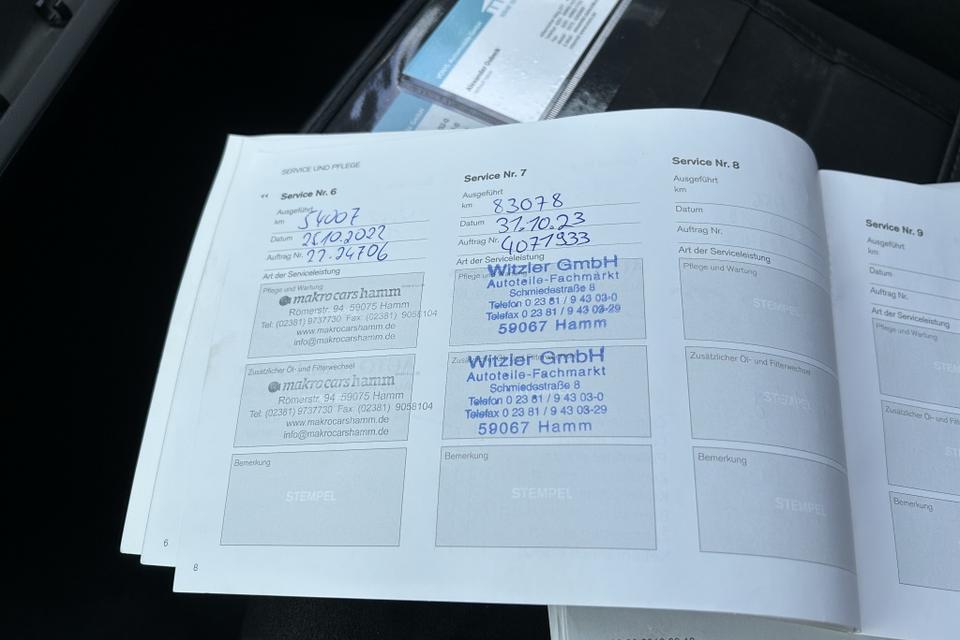 SERVICE UND PFLEGE
Service Nr. 6
Ausgeführt
km 54007
Datum 25.10.2022
Auftrag Nr. 22.24706
Art der Serviceleistung
Pflege und Wartung
makrocarshamm
Römerstr. 94 59075 Hamm
Tel: (02381) 9737730 Fax: (02381) 9058104
www.makrocarshamm.de
info@makrocarshamm.de
Zusätzlicher Öl- und Filterwechsel
makrocarshamm
Römerstr. 94 59075 Hamm
Tel: (02381) 9737730 Fax: (02381) 9058104
www.makrocarshamm.de
info@makrocarshamm.de
Bemerkung
STEMPEL
6
8
Service Nr. 7
Ausgeführt
km 83078
Datum 31.10.23
Auftrag Nr. 4071933
Art der Serviceleistung
Pflege und
Witzler GmbH
Autoteile-Fachmarkt
Schmiedestraße 8
Telefon 0 23 81 / 9 43 03-0
Telefax 0 23 81 / 9 43 03-29
59067 Hamm
Witzler GmbH
Autoteile-Fachmarkt
Schmiedestraße 8
Telefon 0 23 81 / 9 43 03-0
Telefax 0 23 81 / 9 43 03-29
59067 Hamm
Bemerkung
STEMPEL
Service Nr. 8
Ausgeführt
km
Datum
Auftrag Nr.
Art der Serviceleistung
Pflege und Wartung
STEMPEL
Zusätzlicher Öl- und Filterwechsel
STEMPEL
Bemerkung
STEMPEL
Service Nr. 9
Ausgeführt
km
Datum
Auftrag Nr.
Art der Serviceleistung
Pflege und Wartung
Zusätzlicher Öl- und
Bemerkung